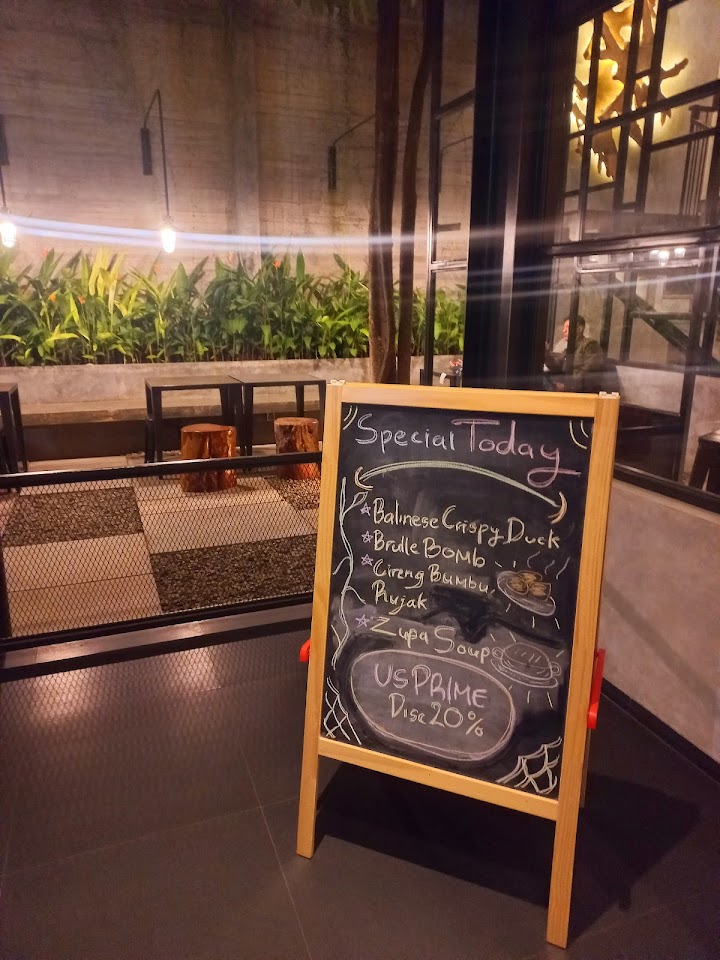 Special Today
Balinese Crispy Duck
Brulle BOMB
Cireng Bumbu
Rujak
Zupa Soup
US PRIME
Disc 20%